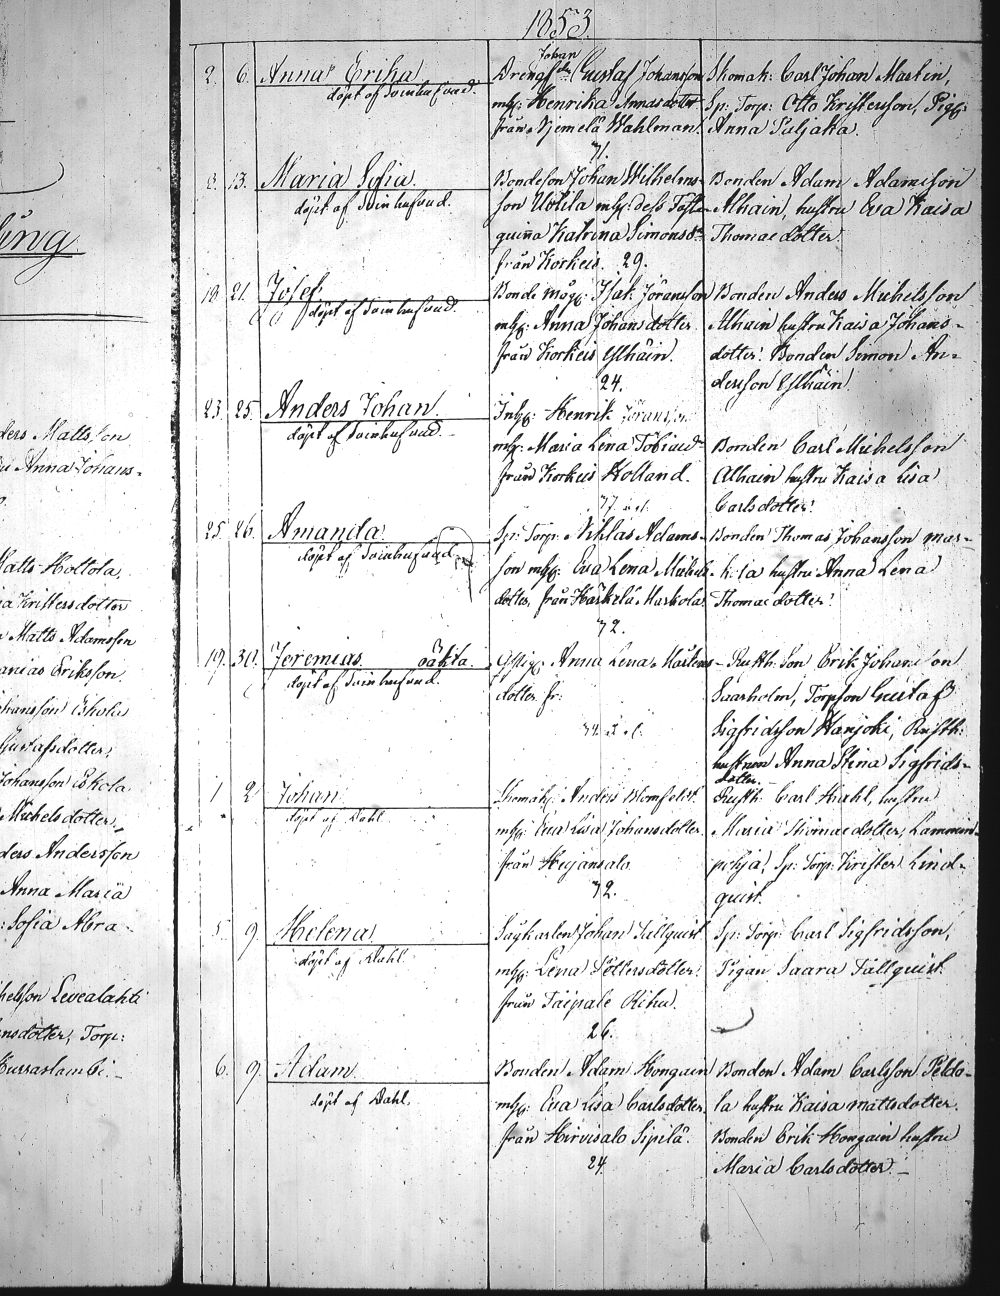 1853.
ling
ders Mattsson
Anna Johans-
Matts Hottola,
Kristersdotter
Matts Adamsson
Eriksson
Johansson Eskola
Gustafsdotter,
Johansson Eskola
Michelsdotter,
ders Andersson
Anna Maria
Sofia Abra-
helsson Levealahti
nsdotter, Torp:
2. 6. Anna Erika
döpt af Svinhufvud.
Johan
Drengen Gustaf Johansson
mh: Henrika Annasdotter
från Njemelä Wahlman.
71.
Carl Johan Martin,
Sp: Torp: Otto Kristersson, Pig:
Anna Suljaka.
2. 13. Maria Sofia.
döpt af Svinhufvud.
Bondeson Johan Wilhelms-
son Uotila mh: dess Fäste-
quina Katrina Simonsdr
från Korkeis. 29.
Bonden Adam Adamsson
Alhain, hustru Eva Kaisa
Thomaedotter
18 21. Josef
döpt af Svinhufvud.
Bonde måg: Isak Jöransson
mh: Anna Johansdotter
från Korkeis Ylhäin.
24.
Bonden Anders Michelsson
Alhain hustru Kaisa Johans-
dotter. Bonden Simon An-
dersson Ylhäin
23. 25. Anders Johan.
döpt af Svinhufvud.
Inh: Henrik Jöransson
mh: Maria Lena Tobiaedr
från Korkeis Holland.
Bonden Carl Michelsson
Alhain hustru Kaisa Lisa
Carlsdotter.
25. 26. Amanda
döpt af Svinhufvud
Sp: Torp: Niklas Adams-
son mh: Eva Lena Michels
dotter, från Härkälä Markola.
72.
Bonden Thomas Johansson mar-
k la hustru Anna Lena
Thomaedotter.
19. 30. Jeremias oäkta.
döpt af Svinhufvud.
Anna Lena Mårtens-
dotter fr:
Rusth: Son Erik Johansson
Saarholm, Torpson Gustaf
Sigfridsson Harjoki, Rusth:
hustrun Anna Stina Sigfrids-
dotter.
1 2 Johan
döpt af Dahl
Anders Blomfelt
mh: Eva Lisa Johansdotter
från Heijansalo.
72.
Rusth: Carl Huhl, hustru
Maria Thomaedotter, Lammin
pohja, Sp: Torp: Krister Lind-
quist.
5 9 Helena
döpt af Dahl.
Sågkarlen Johan Tillquist
mh: Lena Pettersdotter
från Taipale Rihu.
26.
Sp: Torp: Carl Sigfridsson,
Pigan Saara Tällquist
6. 9. Adam.
döpt af Dahl.
Bonden Adam Hongain
mh: Eva Lisa Carlsdotter.
från Hirvisalo Sipilä.
24
Bonden Adam Carlsson Peldo-
la hustru Kaisa Mattsdotter.
Bonden Erik Hongain hustru
Maria Carlsdotter.